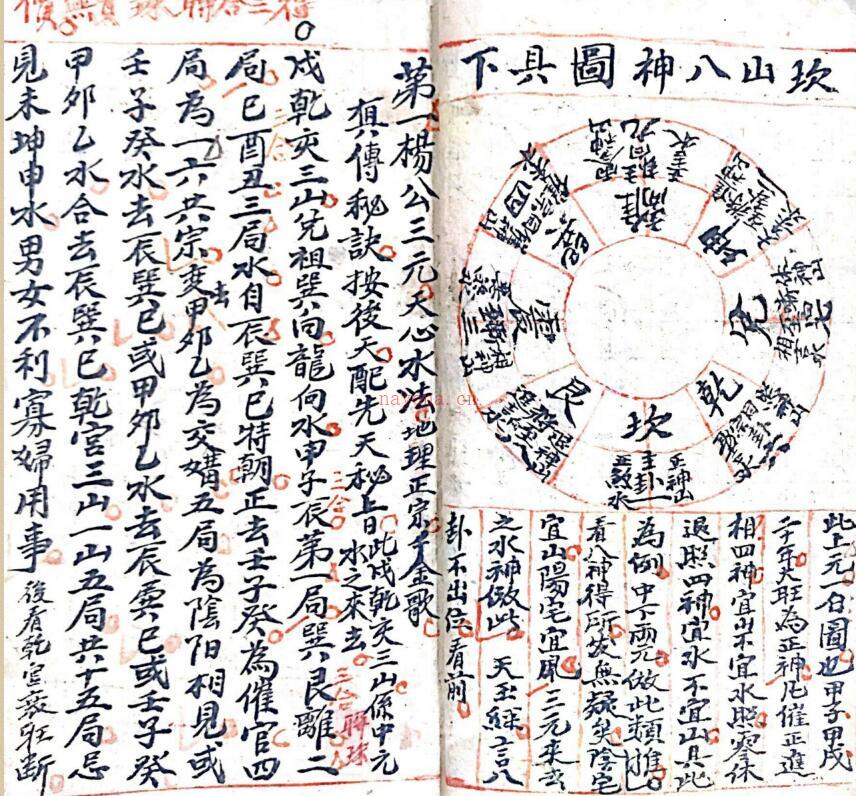 坎山八神圖具下
離
坤
兌
乾
坎
艮
震
巽
正神山
主卦一
正殺水
此上元一白圖也甲子甲戌
二十年大旺為正神凡催正進
相四神宜山不宜水照零係
退照四神宜水不宜山具此
為例中下兩元倣此類推
看八神得所發無疑矣陰宅
宜山陽宅宜風三元來去
之水神倣此 天玉經言八
卦不出位看前
三合聯珠貴無價
第一楊公三元天心水法地理正宗千金歌
真傳秘訣按後天配先天秘上曰此戌乾亥三山係中元
水之來去
三合聯珠
戌乾亥三山先祖巽向龍向水申子辰第一局巽艮離二
三合
局巳酉丑三局水自辰巽巳特朝正去壬子癸為催官四
三合
局為一六共宗变去甲卯乙為交媾五局為陰陽相見或
壬子癸水去辰巽巳或甲卯乙水去辰巽巳或壬子癸
甲卯乙水合去辰巽巳乾宮三山一山五局共十五局忌
見未坤申水男女不利寡婦用事 後看乾宮衰旺断
nayona.cn